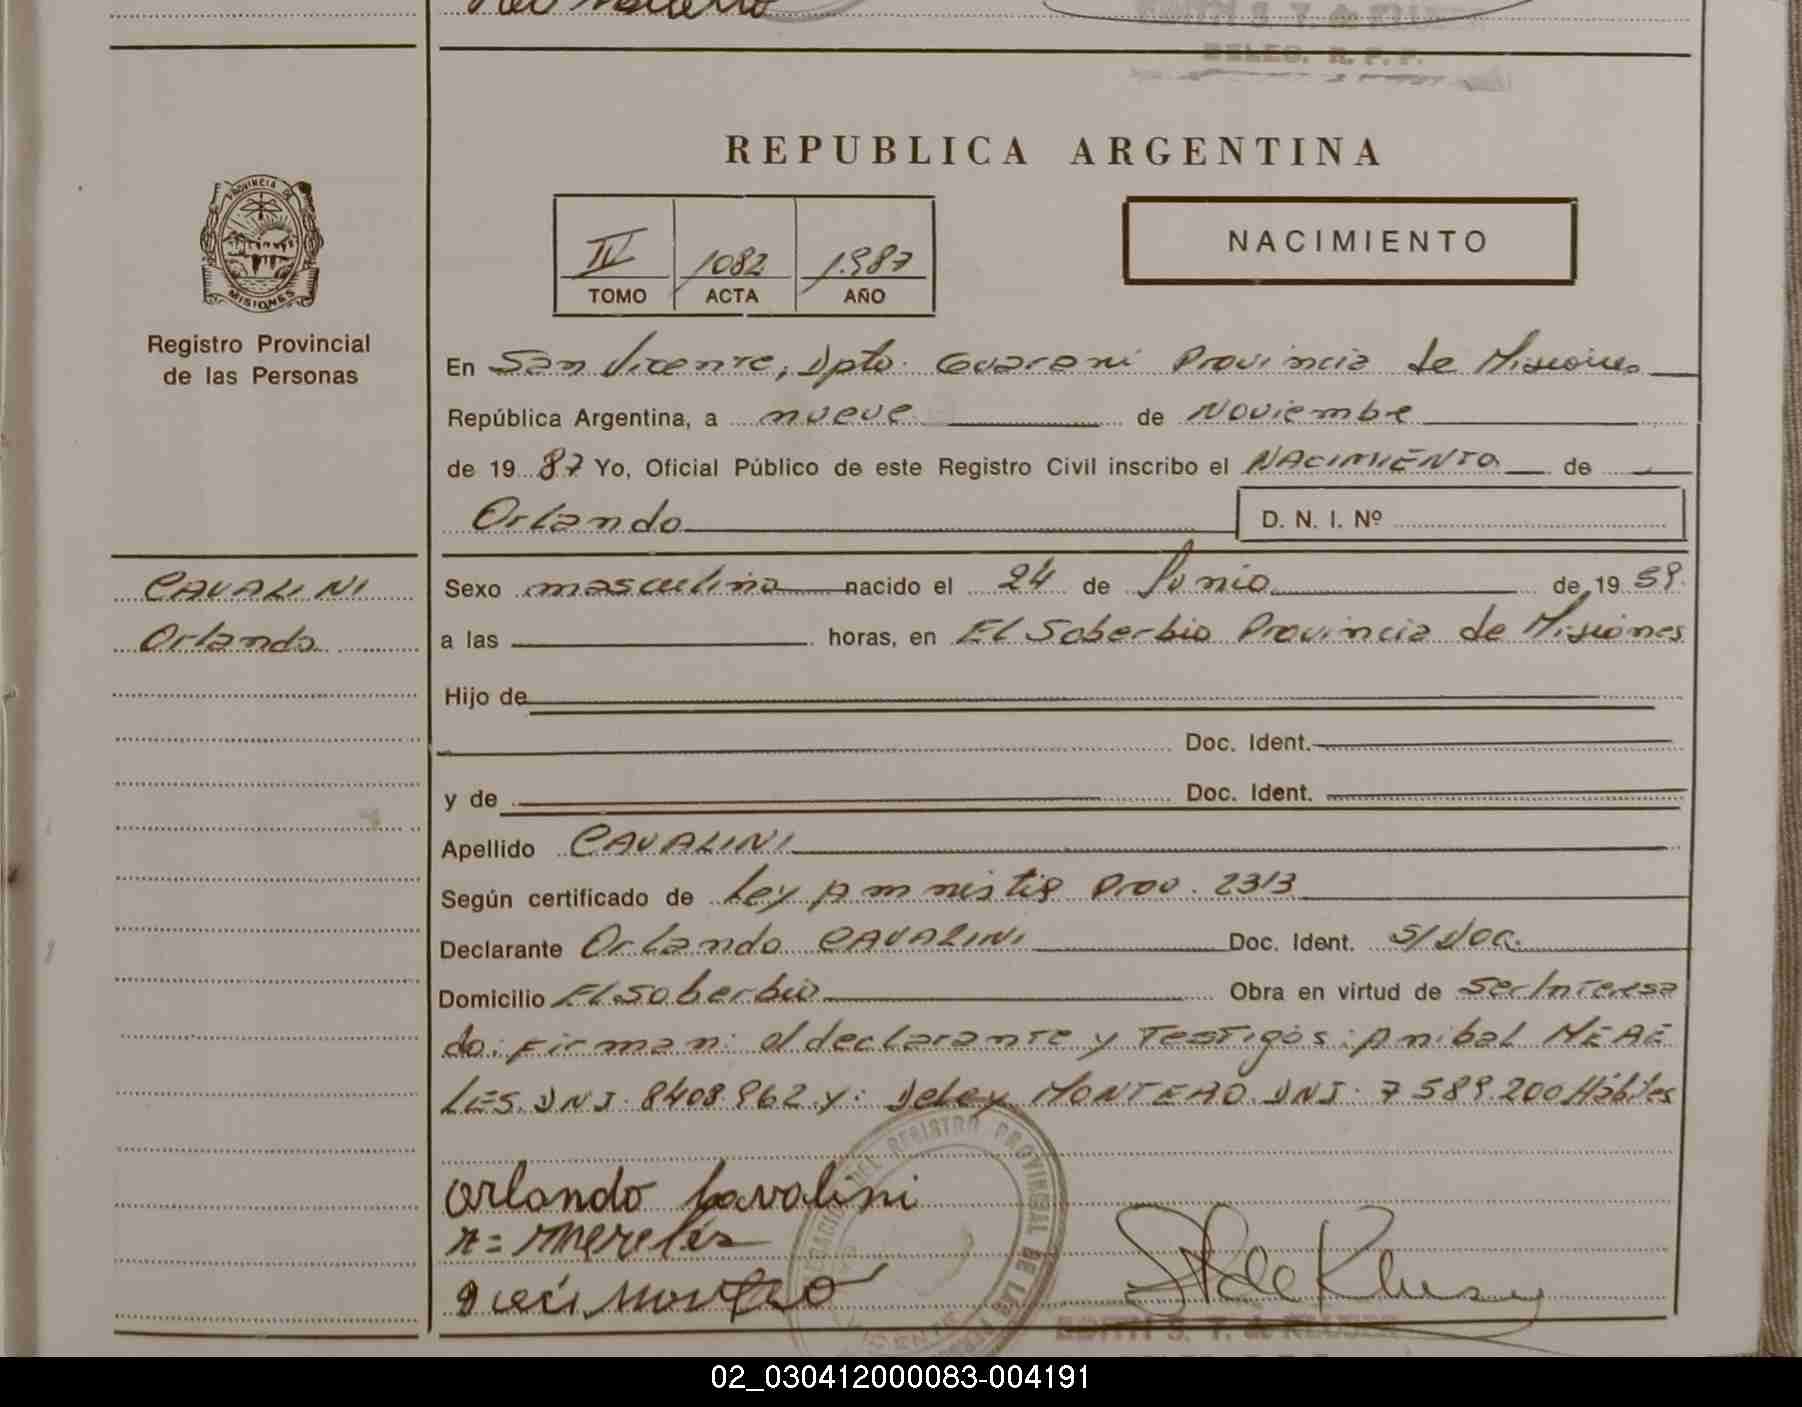 REPUBLICA ARGENTINA
PROVINCIA DE
MISIONES
Registro Provincial
de las Personas
IV 1082 1.987
TOMO ACTA AÑO
NACIMIENTO
En San Vicente, Dpto. Guarani Provincia de Misiones
República Argentina, a nueve de Noviembre
de 19 87 Yo, Oficial Público de este Registro Civil inscribo el NACIMIENTO de
Orlando D. N. I. Nº
CAVALINI
Orlando
Sexo masculino nacido el 24 de Junio de 19 59.
a las horas, en El Soberbio Provincia de Misiones
Hijo de
Doc. Ident.
y de Doc. Ident.
Apellido CAVALINI
Según certificado de Ley Amnistia Prov. 2313
Declarante Orlando CAVALINI Doc. Ident. S/Doc.
Domicilio El Soberbio Obra en virtud de ser Interesa
do: Firman: el declarante y Testigos: Anibal MERE
LES. DNI. 8408.962. y: Delcy MONTERO. DNI. 7.589.200 Hábiles
Orlando Cavalini
A= Mereles
EDITH S. T. de KLUSER
02_030412000083-004191